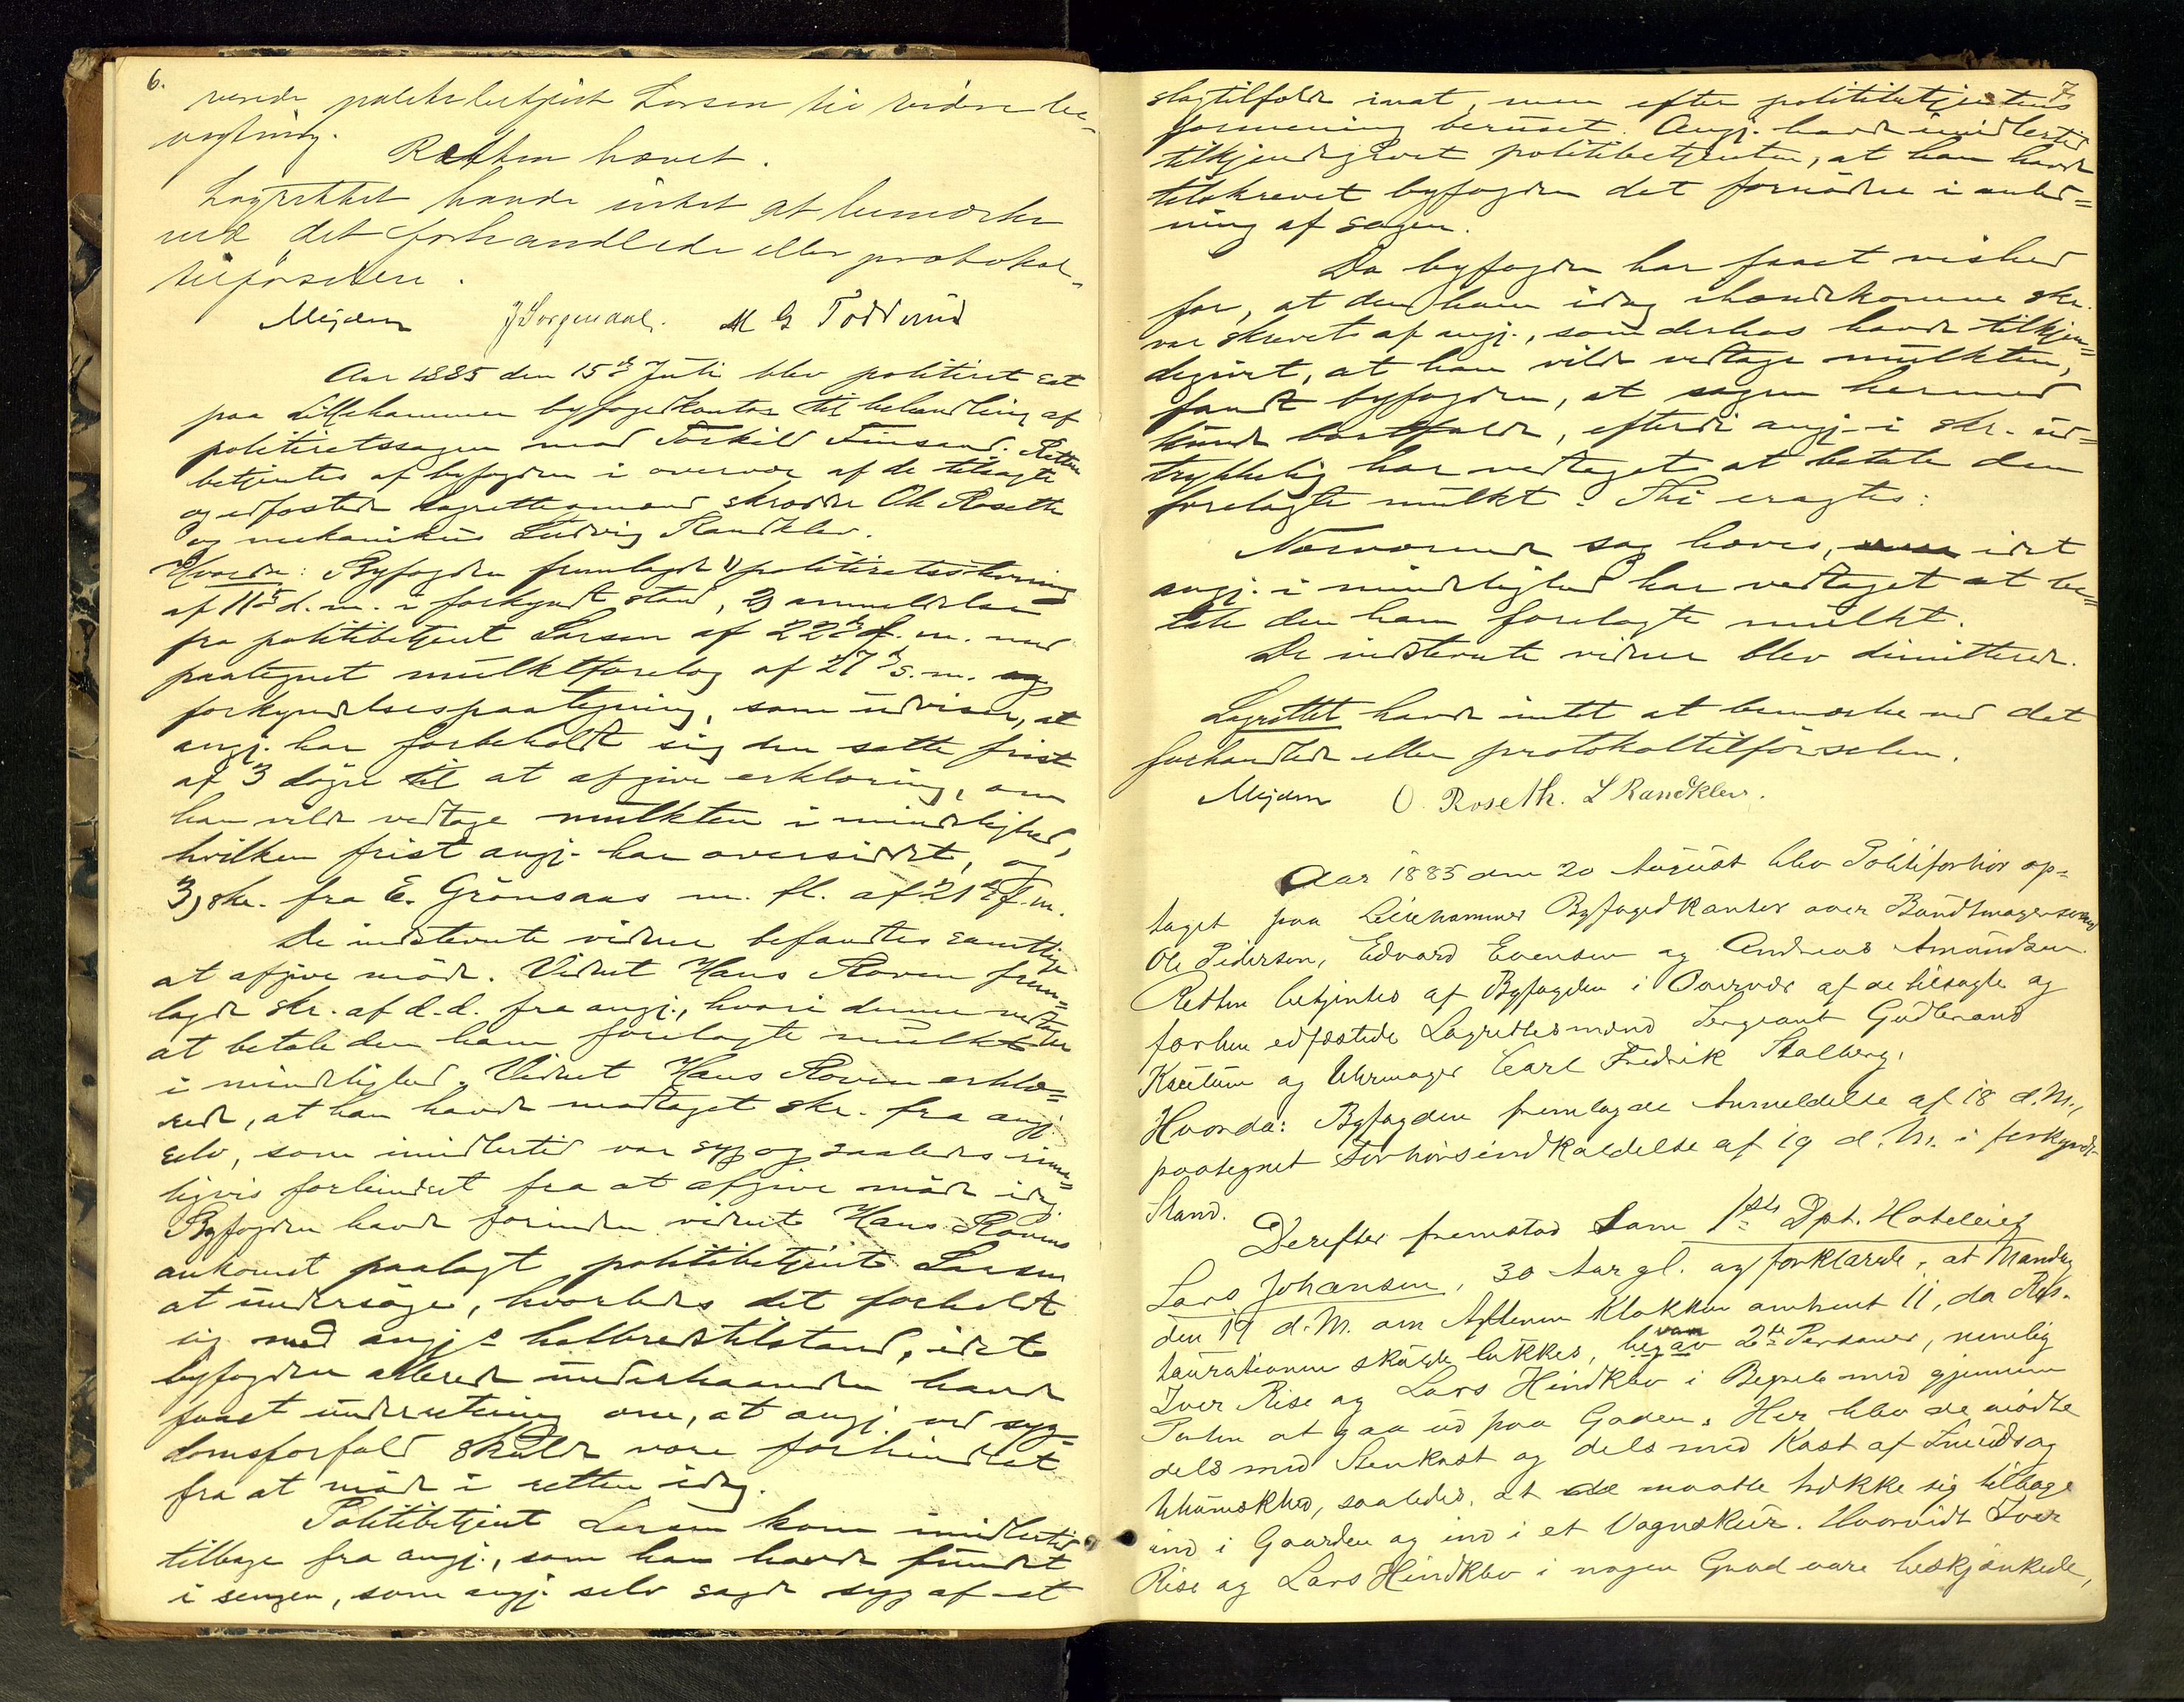 6.
værende politibetjent Larsen til videre be-
vogtning.
Retten hævet.
Lagrettet havde intet at bemærke
ved det forhandlede eller protokol-
tilførselen.
Mejdem J Sorgendal. M G Todderud
Aar 1885 den 15de Juli blev politiret sat
paa Lillehammer byfogedkontor til behandling af
politiretssagen mod Torkild Finsand. Retten
betjentes af byfogden i overvær af de tilsagte
og edfæstede lagrettesmænd skrædder Ole Roseth
og mekanikus Ludvig Randklev.
Hvorda: Byfogden fremlagde 1) politiretsstevning
af 11te d. m. i forkyndt stand, 2) anmeldelse
fra politibetjent Larsen af 22de f. m. med
paategnet mulktforelæg af 27de s. m. og
forkyndelsespaategning, som udviser, at
angj. har forbeholdt sig den satte frist
af 3 døgn til at afgive erklæring, om
han vilde vedtage mulkten i mindelighed,
hvilken frist angj. har oversiddet, og
3) skr. fra E. Grönsaas m. fl. af 21de f. m.
De indstevnte vidner befandtes samtlige
at afgive møde. Vidnet Hans Roven frem-
lagde skr. af d. d. fra angj., hvori denne vedtager
at betale den ham forelagte mulkt
i mindelighed. Vidnet Hans Roven erklæ-
rede, at han havde modtaget skr. fra angj.
selv, som imidlertid var syg og saaledes rime-
ligvis forhindret fra at afgive møde idag.
Byfogden havde forinden vidnet Hans Rovens
ankomst paalagt politibetjent Larsen
at undersøge, hvorledes det forholdt
sig med angj.s helbredstilstand, idet
byfogden allerede underhaanden havde
faaet underretning om, at angj. ved syg-
domsforfald skulde være forhindret
fra at møde i retten idag.
Politibetjent Larsen kom imidlertid
tilbage fra angj., som han havde fundet
i sengen, som angj. selv sagde syg af et
7.
slagtilfælde inat, men efter politibetjentens
formening beruset. Angj. havde imidlertid
tilkjendegivet politibetjenten, at han havde
tilskrevet byfogden det fornødne i anled-
ning af sagen.
Da byfogden har faaet vished
for, at den ham idag ihændekomne skr.
var skrevet af angj., som derhos havde tilkjen-
degivet, at han vilde vedtage mulkten,
fandt byfogden, at sagen hermed
kunde bortfalde, efterdi angj. i skr. ud-
trykkelig har vedtaget at betale den
forelagte mulkt. Thi eragtes:
Nærværende sag hæves, idet
angj. i mindelighed har vedtaget at be-
tale den ham forelagte mulkt.
De indstevnte vidner blev dimitterede.
Lagrettet havde intet at bemærke ved det
forhandlede eller protokoltilførselen.
Mejdem O. Roseth. L Randklev.
Aar 1885 den 20 August blev Politiforhør op-
taget paa Lillehammer Byfogedkontor over Bundtmagersvend
Ole Pedersen, Edvard Evensen og Andreas Amundsen.
Retten betjentes af Byfogden i Overvær af de tilsagte og
forhen edfæstede Lagrettesmænd Sergeant Gudbrand
Krutum og Uhrmager Carl Fredrik Stalberg.
Hvorda: Byfogden fremlagde Anmeldelse af 18 d. M.,
paategnet Forhørsindkaldelse af 19 d. M. i forkyndt
Stand.
Derefter fremstod som 1ste Dpt. Hoteleier
Lars Johansen, 30 Aar gl. og forklarede, at Mandag
den 17 d. M. om Aftenen Klokken omtrent 11, da Res-
taurationen skulde lukkes, begav van 2de Personer, nemlig
Iver Rise og Lars Hindklev i Begreb med gjennem
Porten at gaa ud paa Gaden. Her blev de mødte
dels med Stenkast og dels med Kast af Smuds og
Uhumskhed, saaledes, at de maatte trække sig tilbage
ind i Gaarden og ind i et Vognskur. Hvorvidt Iver
Rise og Lars Hindklev i nogen Grad vare beskjænkede,